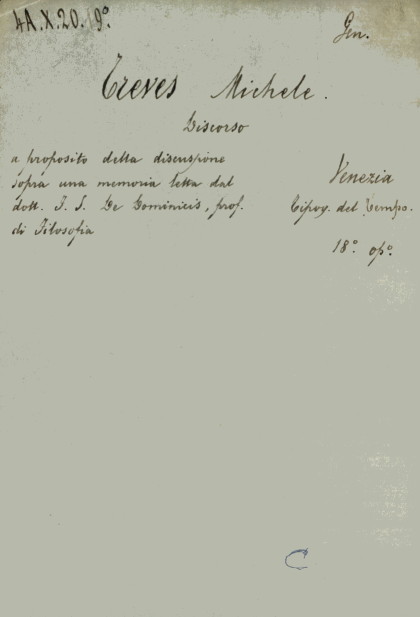 4A.X.20. 9°
Gen.
Treves Michele.
Discorso
a proposito della discussione
sopra una memoria letta dal
dott. F. S. De Dominicis, prof.
di Filosofia
Venezia
Tipog. del Tempo.
18° op°.
C